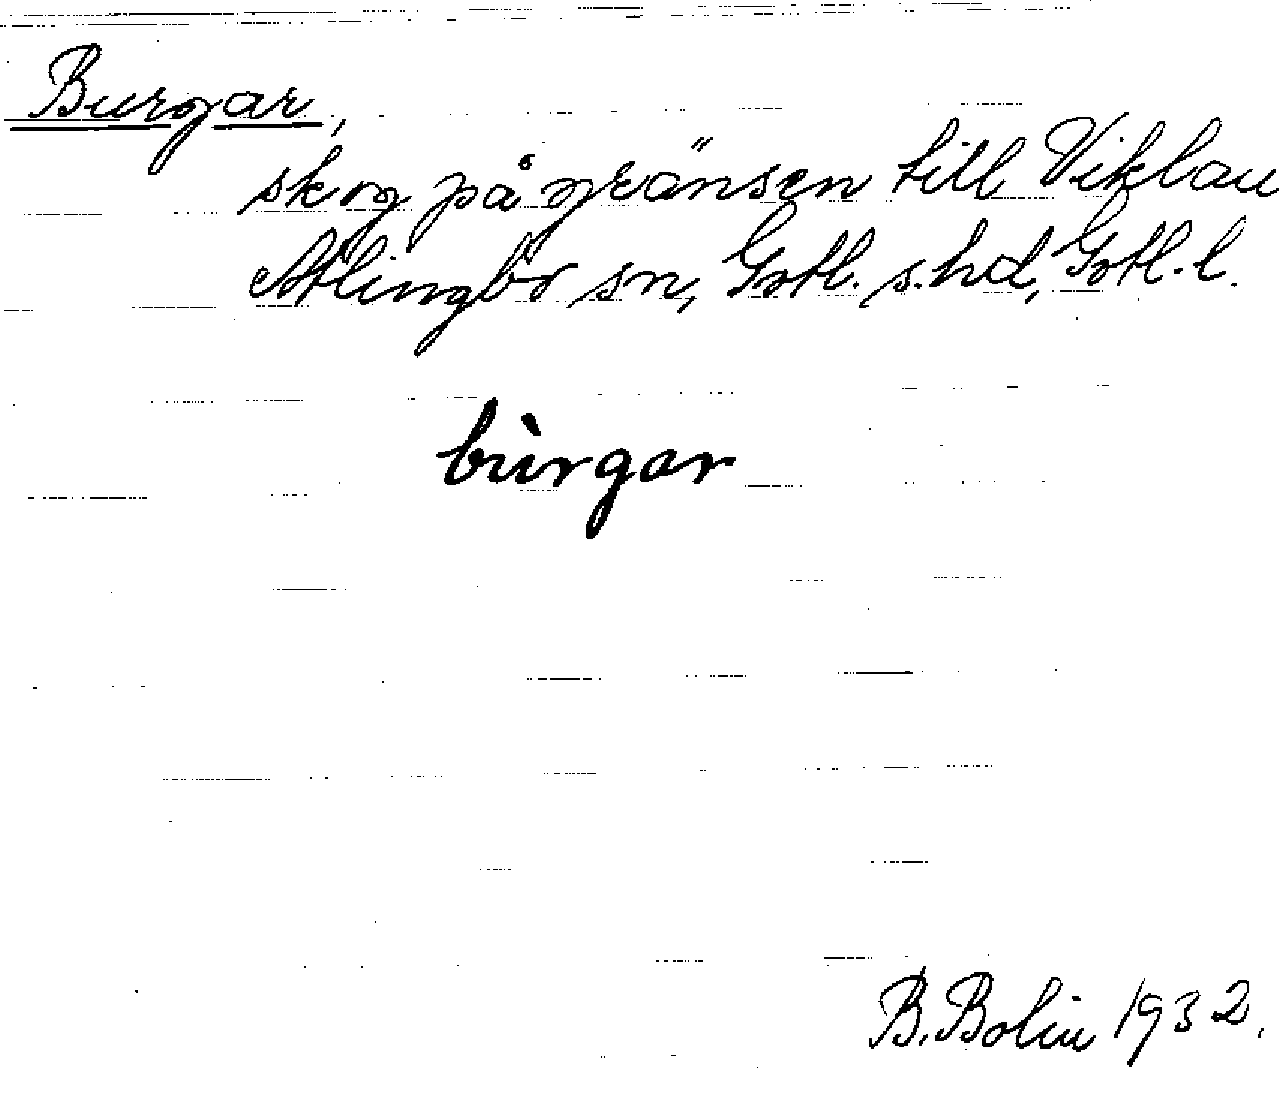 Burgar,
skog på gränsen till Viklau
Atlingbo sn, Gotl. s. hd, Gotl. l.
bùrgar
B. Bolin 1932.